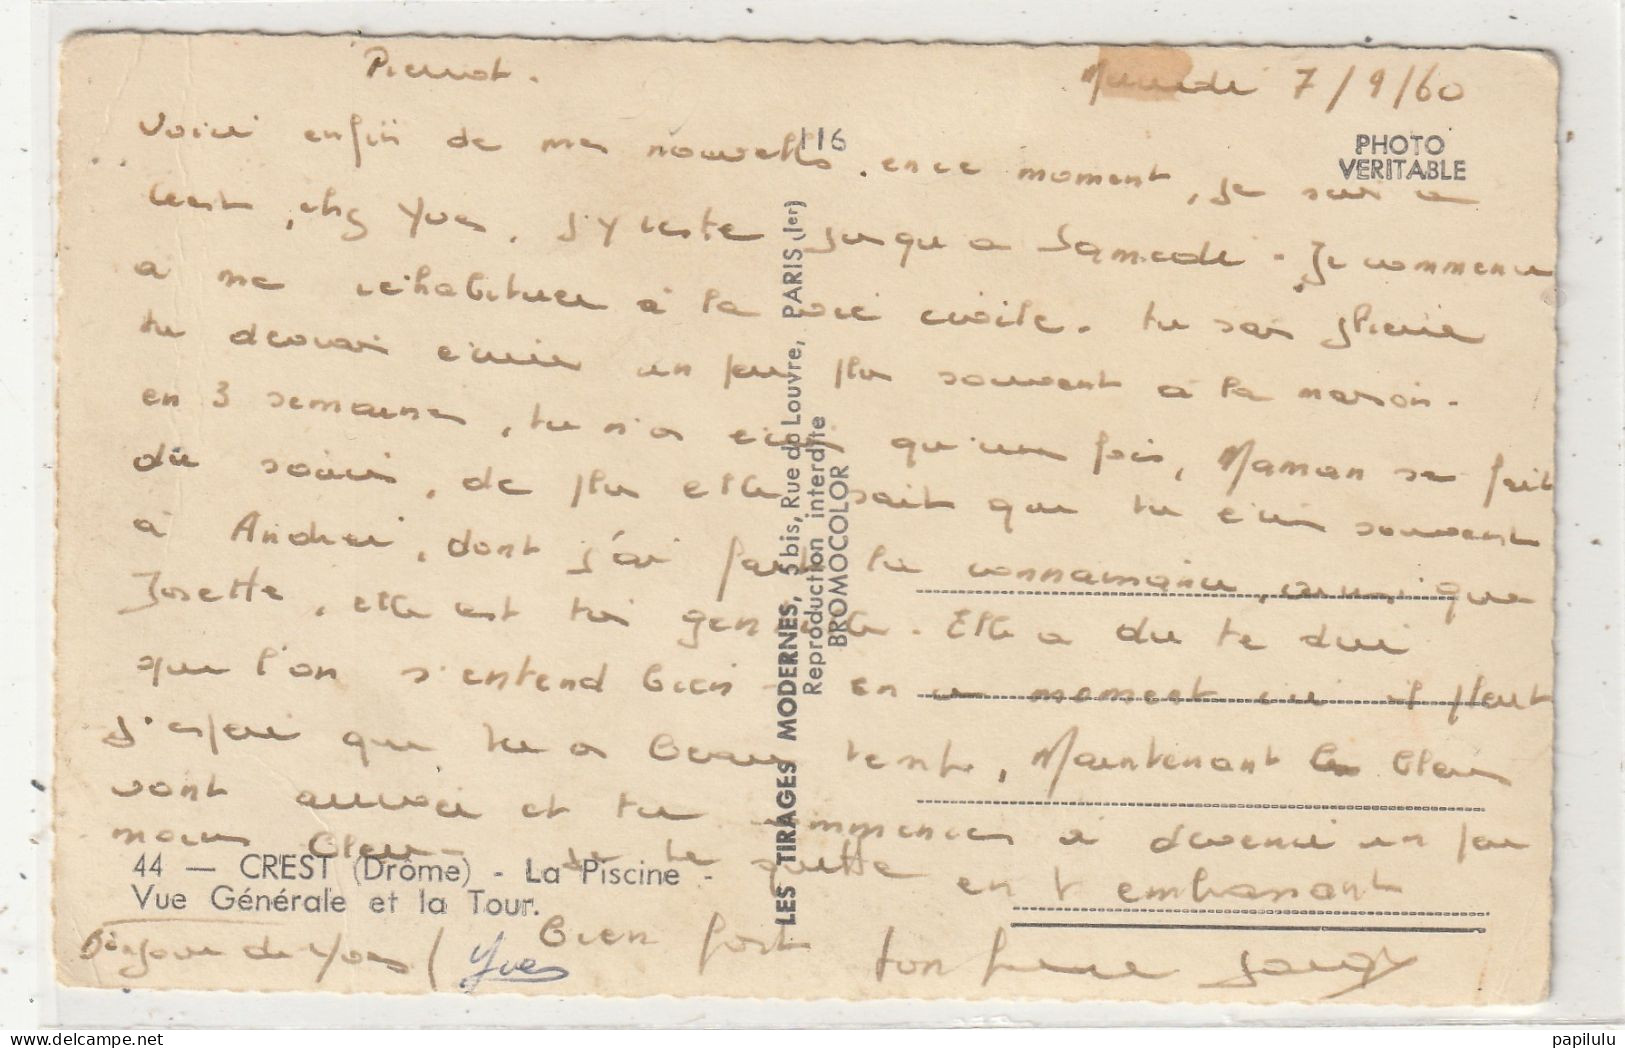 Pierrot.
7/9/60
116
PHOTO
VERITABLE
Voici enfin de mes nouvelles, en ce moment, je suis a
crest, chez Yves, j'y reste jusqu'a Samedi. Je commence
a me réhabituer à la vie civile. tu sais
tu devrais écrire un peu plus souvent à la maison.
en 3 semaines, tu n'a écrit qu'une fois, Maman se fait
du souci, de plus elle sait que tu écris souvent
à Andrée, dont j'ai fait la connaissance, ainsi que
Josette, elle est très gentille. Elle a du te dire
que l'on s'entend bien. en ce moment ici il pleut
J'espère que tu as beau temps, Maintenant les bleus
vont arriver et tu commences a devenir un peu
moins bleu. Je te quitte en t'embrassant
bien fort ton frère
Bonjour de Yves / Yves
44 — CREST (Drôme) - La Piscine -
Vue Générale et la Tour.
LES TIRAGES MODERNES, 5 bis, Rue du Louvre, PARIS (1er)
Reproduction interdite
BROMOCOLOR
papilulu